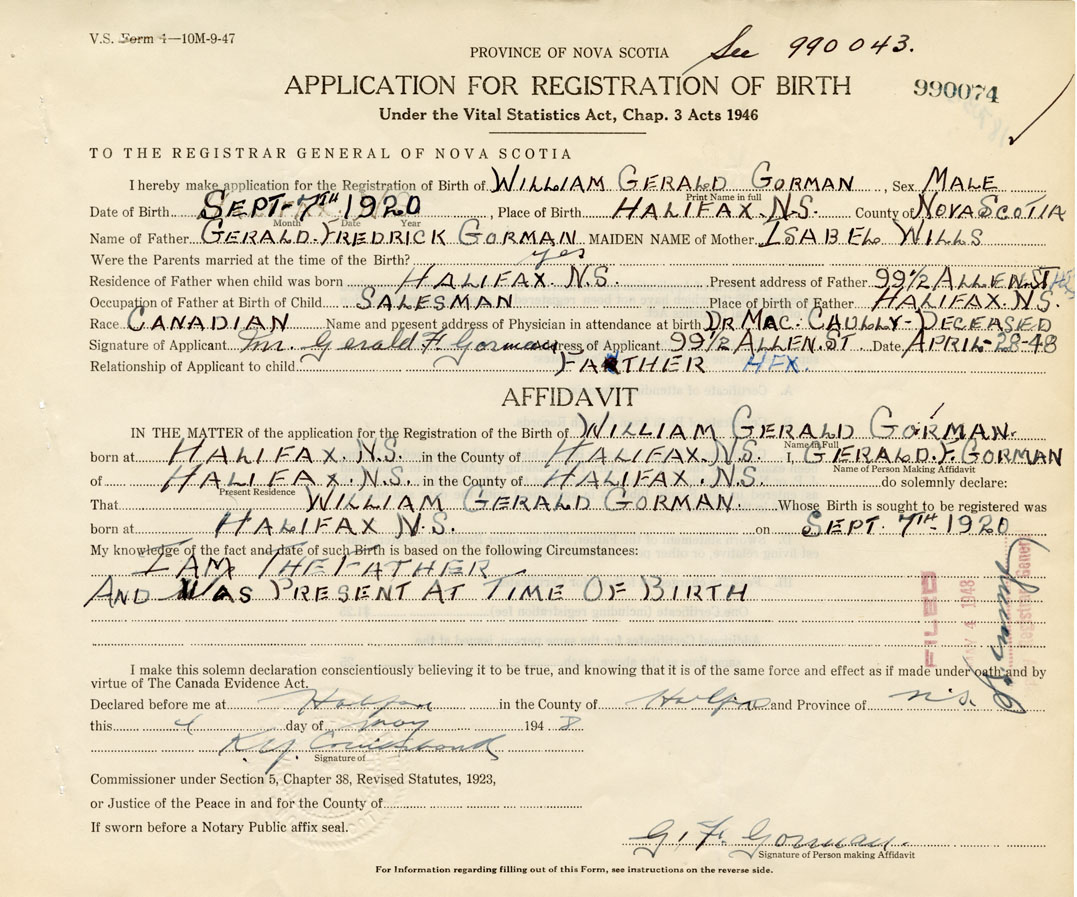 V.S. Form 4—10M-9-47
PROVINCE OF NOVA SCOTIA See 990043.
APPLICATION FOR REGISTRATION OF BIRTH 990074
Under the Vital Statistics Act, Chap. 3 Acts 1946
TO THE REGISTRAR GENERAL OF NOVA SCOTIA
I hereby make application for the Registration of Birth of WILLIAM GERALD GORMAN, Sex MALE
Print Name in full
Date of Birth SEPT-7TH 1920, Place of Birth HALIFAX.N.S. County of NOVA SCOTIA
Month Date Year
Name of Father GERALD.FREDRICK GORMAN MAIDEN NAME of Mother ISABEL WILLS
Were the Parents married at the time of the Birth? yes
Residence of Father when child was born HALIFAX.N.S. Present address of Father 99 1/2 ALLEN.ST
Occupation of Father at Birth of Child SALESMAN Place of birth of Father HALIFAX.N.S.
Race CANADIAN Name and present address of Physician in attendance at birth DR MAC.CAULLY-DECEASED
Signature of Applicant Mr. Gerald F Gorman Address of Applicant 99 1/2 ALLEN.ST Date APRIL-28-48
Relationship of Applicant to child FARTHER HFX.
AFFIDAVIT
IN THE MATTER of the application for the Registration of the Birth of WILLIAM GERALD GORMAN.
Name in Full
born at HALIFAX.N.S. in the County of HALIFAX.N.S. I, GERALD.F.GORMAN
Name of Person Making Affidavit
of HALIFAX.N.S. in the County of HALIFAX.N.S. do solemnly declare:
Present Residence
That WILLIAM GERALD GORMAN. Whose Birth is sought to be registered was
born at HALIFAX N.S. on SEPT. 7TH-1920
My knowledge of the fact and date of such Birth is based on the following Circumstances:
I AM THE FATHER
AND WAS PRESENT AT TIME OF BIRTH
FILED
MAY 4 1948
Registrar General
I make this solemn declaration conscientiously believing it to be true, and knowing that it is of the same force and effect as if made under oath and by
virtue of The Canada Evidence Act.
Declared before me at Halifax in the County of Halifax and Province of N.S.
this 4 day of May 1948
Signature of
Commissioner under Section 5, Chapter 38, Revised Statutes, 1923,
or Justice of the Peace in and for the County of
If sworn before a Notary Public affix seal.
G. F. Gorman.
Signature of Person making Affidavit
For Information regarding filling out of this Form, see instructions on the reverse side.